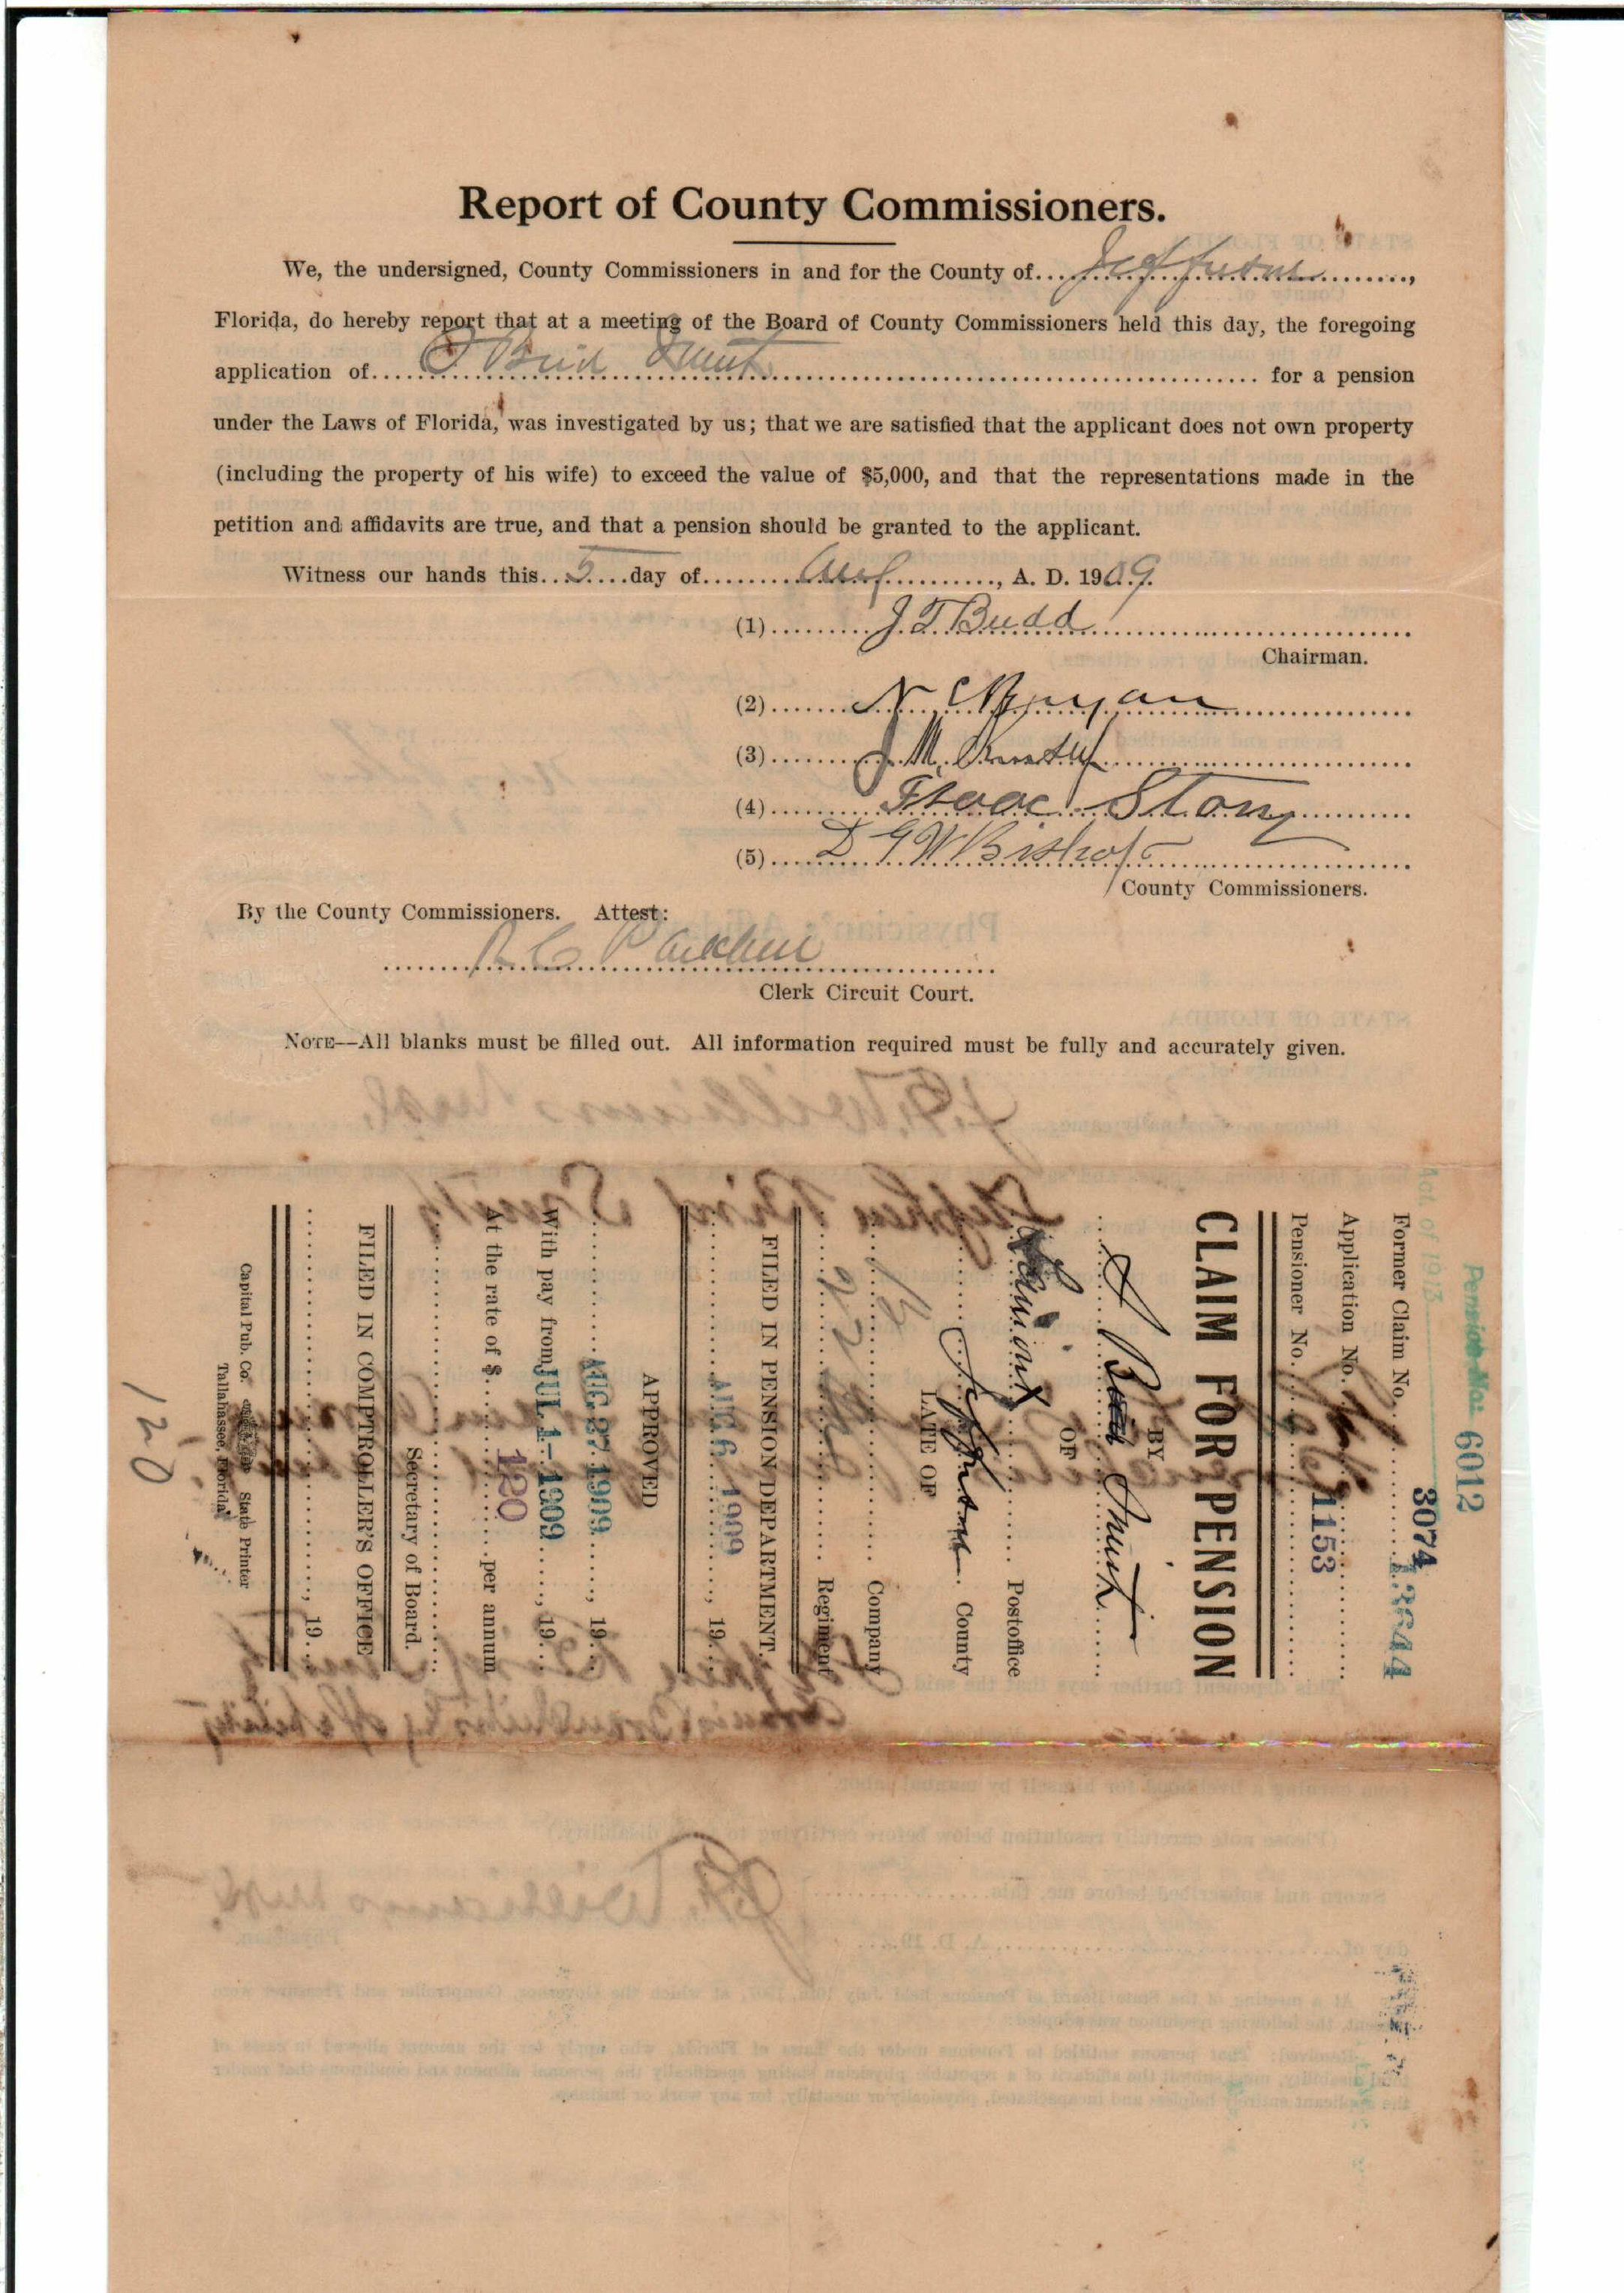 Report of County Commissioners.
We, the undersigned, County Commissioners in and for the County of....Jefferson..........,
Florida, do hereby report that at a meeting of the Board of County Commissioners held this day, the foregoing
application of.... Smith.... for a pension
under the Laws of Florida, was investigated by us; that we are satisfied that the applicant does not own property
(including the property of his wife) to exceed the value of $5,000, and that the representations made in the
petition and affidavits are true, and that a pension should be granted to the applicant.
Witness our hands this...5....day of........Aug..........., A. D. 1909.
(1)..........J. T. Budd..........
Chairman.
(2).......N C Bryan..........
(3).........J. M.
(4)..........Isaac Story..........
(5).....D G W Bishop..........
County Commissioners.
By the County Commissioners. Attest:
R C
Clerk Circuit Court.
NOTE—All blanks must be filled out. All information required must be fully and accurately given.
Act of 1913
Pension No. 6012
3074
Former Claim No. 13644
Application No.
Pensioner No. 1153
CLAIM FOR PENSION
BY
S Bird Smith
OF
Lamont Postoffice
Jefferson County
LATE OF
Company
Regiment
FILED IN PENSION DEPARTMENT.
AUG 6 1909, 19
APPROVED
AUG 27 1909, 19
With pay from JUL 1-1909, 19
At the rate of $ 120 per annum
Secretary of Board.
FILED IN COMPTROLLER'S OFFICE
, 19
Capital Pub. Co. State Printer
Tallahassee, Florida
120